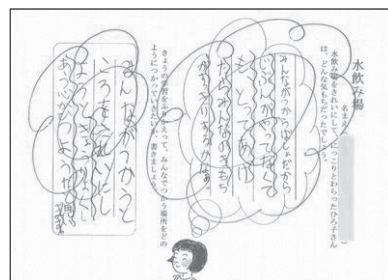 水飲み場
名まえ
水飲み場をきれいにして、にっこりとわらったひろ子さん
は、どんな気もちだったでしょう。
みんながつかうばしょだから
じぶんがやってなくて
も、とってあげ
たらみんなのきもち
がすっきりするかなぁ。
きょうの学習をふりかえって、みんなでつかう場所をどの
ようにつかっていきたいか、書きましょう。
みんながつかうと
ころをきれいにし